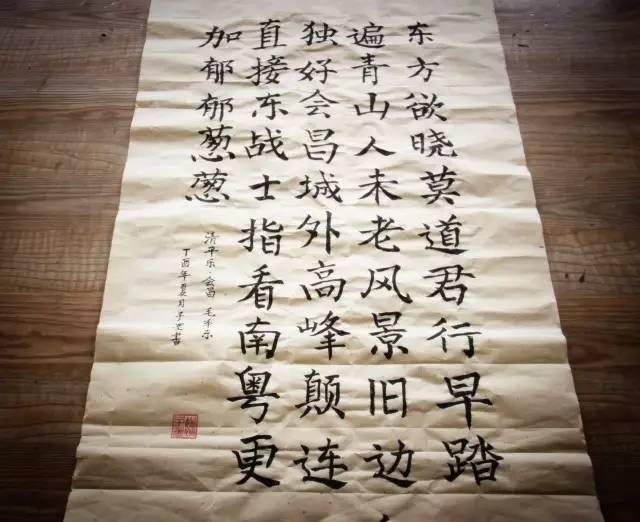 东方欲晓莫道君行早踏
遍青山人未老风景旧边
独好会昌城外高峰颠连
直接东战士指看南粤更
加郁郁葱葱
清平乐·会昌 毛泽东
丁酉年 月 书